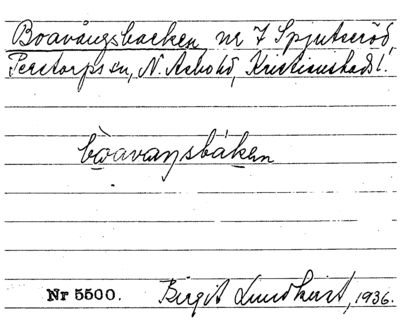 Boavångsbacken, nr 7 Spjutseröd,
Perstorps sn, N. Åsbo hd, Kristianstads l.
bòavaŋsbáken
Nr 5500. Birgit Lundkvist, 1936.